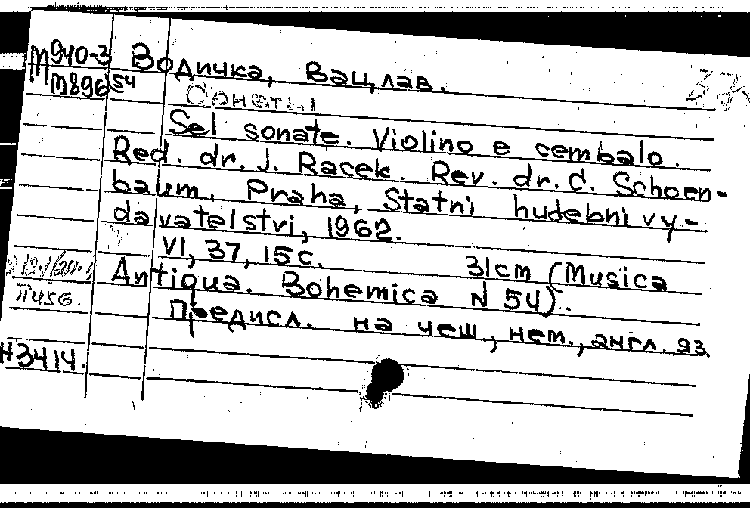 М940-3 Водичка, Вацлав.
М896 54
Сонаты
Sel sonate. Violino e cembalo.
Red. dr. J. Racek. Rev. dr. C. Schoen-
baum. Praha, Statni hudebni vy-
davatelstvi, 1962.
VI, 37, 15 с. 31cm (Musica
Antiqua. Bohemica N 54).
Предисл. на чеш., нем., англ. яз.
Н3414.